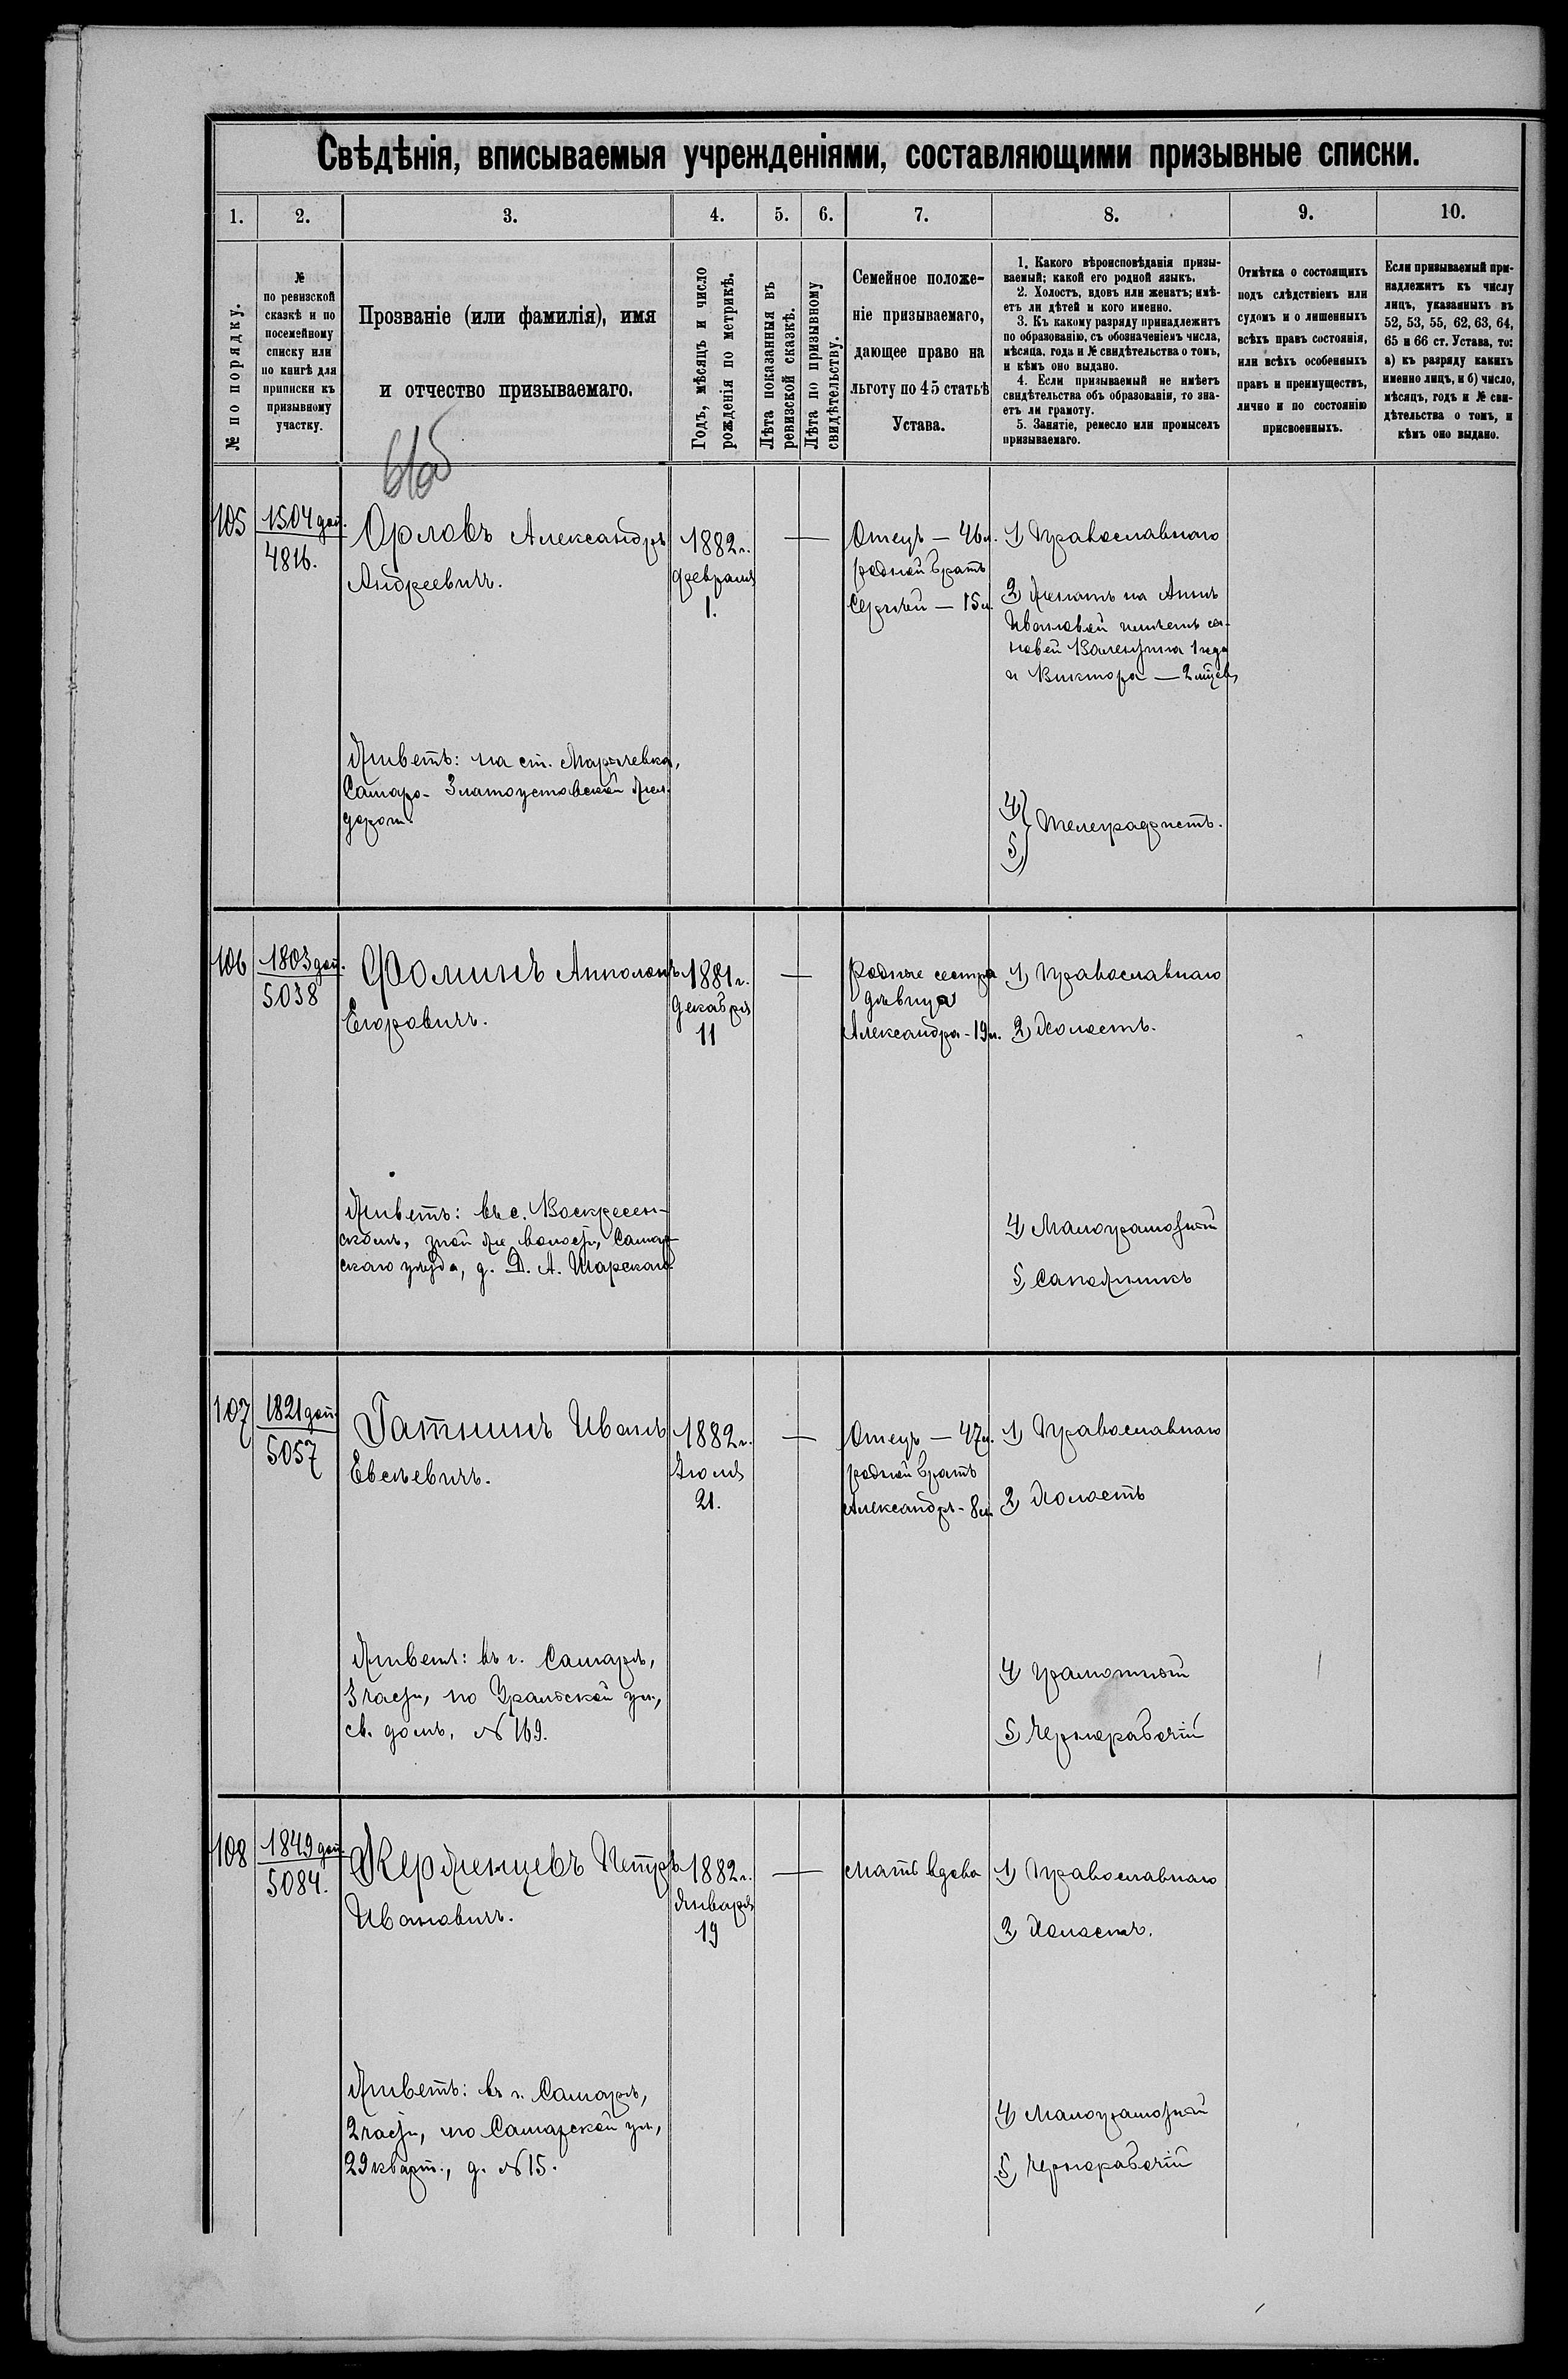 Свѣдѣнія, вписываемыя учрежденіями, составляющими призывные списки.
1. 2. 3. 4. 5. 6. 7. 8. 9. 10.
№ по порядку.
№
по ревизской
сказкѣ и по
посемейному
списку или
по книгѣ для
приписки къ
призывному
участку.
Прозваніе (или фамилія), имя
и отчество призываемаго.
Годъ, мѣсяцъ и число
рожденія по метрикѣ.
Лѣта показанныя въ
ревизской сказкѣ.
Лѣта по призывному
свидѣтельству.
Семейное положе-
ніе призываемаго,
дающее право на
льготу по 45 статьѣ
Устава.
1. Какого вѣроисповѣданія призы-
ваемый; какой его родной языкъ.
2. Холостъ, вдовъ или женатъ; имѣ-
етъ ли дѣтей и кого именно.
3. Къ какому разряду принадлежитъ
по образованію, съ обозначеніемъ числа,
мѣсяца, года и № свидѣтельства о томъ,
и кѣмъ оно выдано.
4. Если призываемый не имѣетъ
свидѣтельства объ образованіи, то зна-
етъ ли грамоту.
5. Занятіе, ремесло или промыселъ
призываемаго.
Отмѣтка о состоящихъ
подъ слѣдствіемъ или
судомъ и о лишенныхъ
всѣхъ правъ состоянія,
или всѣхъ особенныхъ
правъ и преимуществъ,
лично и по состоянію
присвоенныхъ.
Если призываемый при-
надлежитъ къ числу
лицъ, указанныхъ въ
52, 53, 55, 62, 63, 64,
65 и 66 ст. Устава, то:
а) къ разряду какихъ
именно лицъ, и б) число,
мѣсяцъ, годъ и № сви-
дѣтельства о томъ, и
кѣмъ оно выдано.
105
1504 доп.
4816.
Орловъ Александръ
Андреевичъ.
Живетъ: на ст. Марычевка,
Самаро-Златоустовской жел.
дороги.
1882 г.
Февраля
1.
—
Отецъ — 46 л.
родной братъ
Сергѣй — 15 л.
1) Православнаго
2) Женатъ на Аннѣ
Ивановой имѣетъ сы-
новей Валентина 1 года
и Виктора — 2 мѣсяц.
4)
5)
Телеграфистъ.
106
1803 доп.
5038
Фоминъ Апполонъ
Егоровичъ.
Живетъ: въ с. Воскресен-
скомъ, той же волости, Самар-
скаго уѣзда, д. Д. А. Шарскаго.
1881 г.
Декабря
11
—
Родные сестра
дѣвица
Александра - 19 л.
1) Православнаго
2) Холостъ.
4) Малограмотный
5) Сапожникъ
107
1821 доп.
5057
Гатинъ Иванъ
Евсѣевичъ.
Живетъ: въ г. Самарѣ,
3 части, по Уральской ул.,
св. домъ, № 169.
1882 г.
Іюля
21.
—
Отецъ — 47 л.
родной братъ
Александръ - 8 л.
1) Православнаго
2) Холостъ
4) Грамотный
5) Чернорабочій
108
1849 доп.
5084.
Керженцевъ Петръ
Ивановичъ.
Живетъ: въ г. Самарѣ,
2 части, по Самарской ул.,
29 кварт., д. № 15.
1882 г.
Января
19
—
Мать вдова
1) Православнаго
2) Холостъ.
4) Малограмотный
5) Чернорабочій